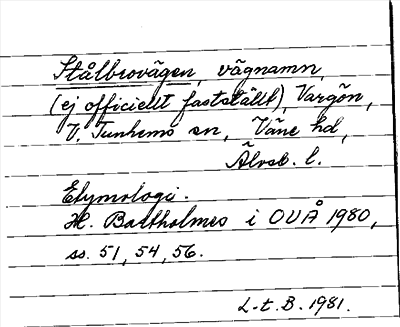 Stålbrovägen, vägnamn,
(ej officiellt fastställt), Vargön,
V. Tunhems sn, Väne hd,
Älvsb. l.
Etymologi.
H. Baltholmes i OUÅ 1980,
ss. 51, 54, 56.
L-t. B. 1981.